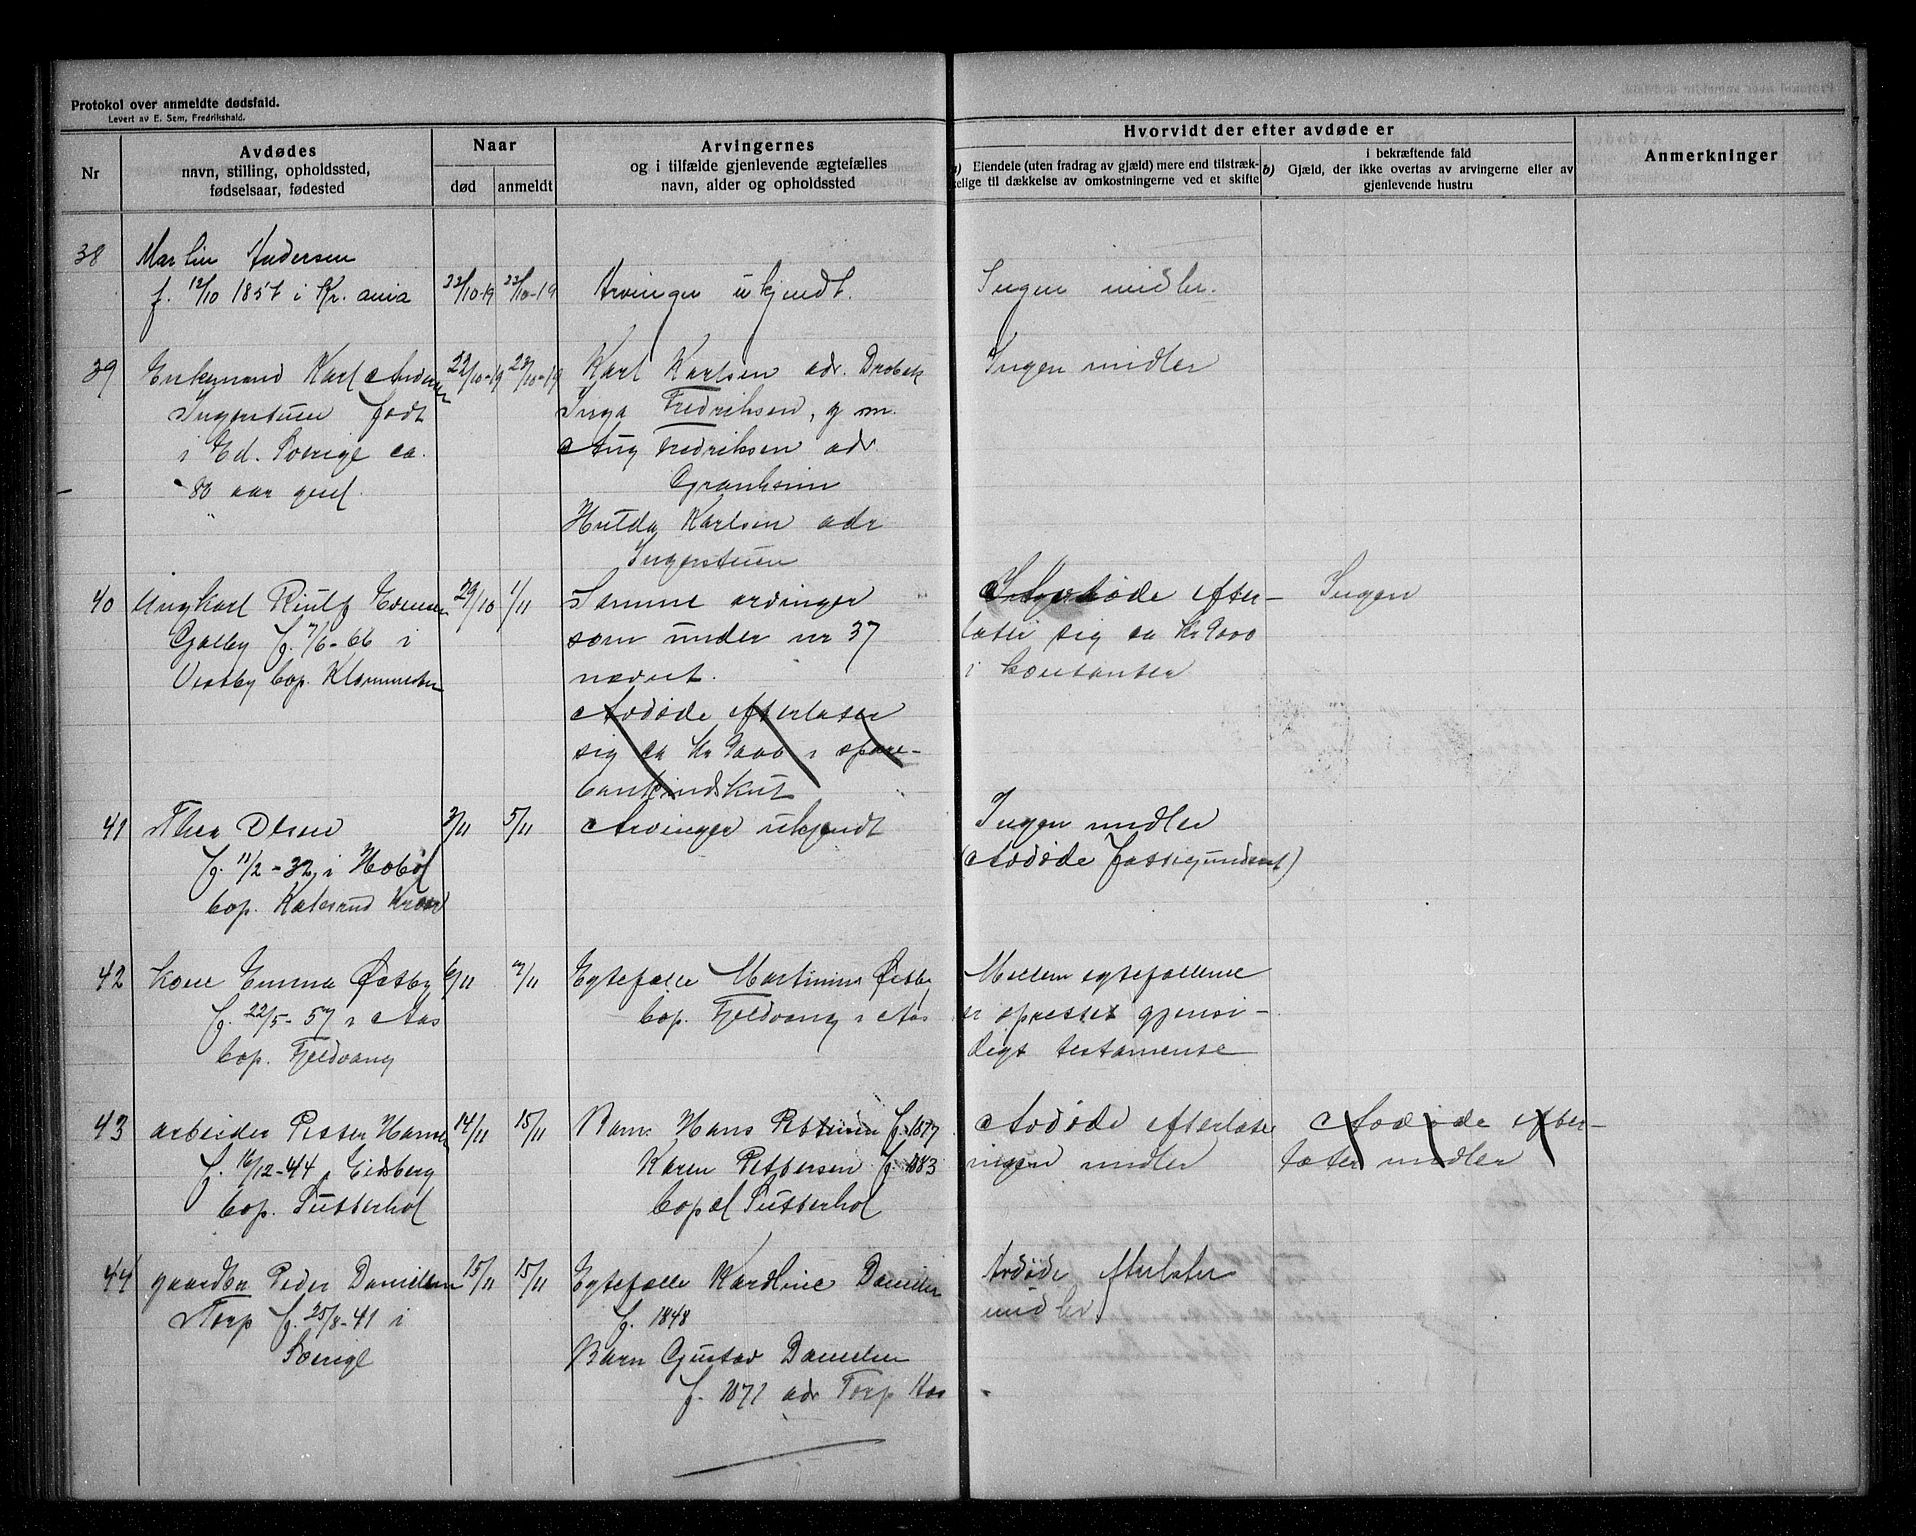 Protokol over anmeldte dødsfald.
Levert av E. Sem, Fredrikshald.
Nr
Avdødes
navn, stilling, opholdssted,
fødselsaar, fødested
Naar
død
anmeldt
Arvingernes
og i tilfælde gjenlevende ægtefælles
navn, alder og opholdssted
Hvorvidt der efter avdøde er
a) Eiendele (uten fradrag av gjæld) mere end tilstræk-
kelige til dækkelse av omkostningerne ved et skifte
i bekræftende fald
b) Gjæld, der ikke overtas av arvingerne eller av
gjenlevende hustru
Anmerkninger
38
Andersen
f. 12/10 1857 i Kr.ania
22/10-19
22/10-19
Arvinger ukjendt.
Ingen midler.
39
Enkemand Karl Andersen
Ingerstuen født
i Ed. Sverige ca.
80 aar gml.
22/10-19
23/10-19
Karl Karlsen adr. Drøbak
Inga Fredriksen, g m.
Aug Fredriksen adr.
Granheim
Hulda Karlsen adr
Ingerstuen
Ingen midler
40
Ungkarl Evensen
Galby f. 7/6-66 i
Vestby bop. Klommesten
29/10
1/11
Samme arvinger
som under nr 37
nævnt.
Avdøde efterlater
sig ca Kr 9000 i spare-
bankindskut
Avdøde efter-
later sig ca Kr 9000
i kontanter
Ingen
41
Thea Olsen
f. 11/2-32 i Hobøl
bop. Kroer
3/11
5/11
Arvinger ukjendt
Ingen midler
(Avdøde fattigunderst)
42
Kone Emma Østby
f. 22/5-57 i Aas
bop. Fjeldvang
6/11
7/11
Egtefælle Martinius Østby
bop. Fjeldvang i Aas
Mellem egtefællerne
er oprettet gjensi-
digt testamente
43
arbeider Petter Hansen
f. 16/12-44 i Eidsberg
bop. Sutterhol
14/11
15/11
Barn Hans Pettersen f. 1877
Karen Pettersen f. 1883
bopæl Sutterhol
Avdøde efterlater
ingen midler
Avdøde efter-
later midler
44
gaardbr Peder Danielsen
Torp f. 25/8-41 i
Sverige
15/11
15/11
Egtefælle Karoline Danielsen
f. 1848
Barn Gustav Danielsen
f. 1871 adr Torp Aas
Avdøde efterlater
midler